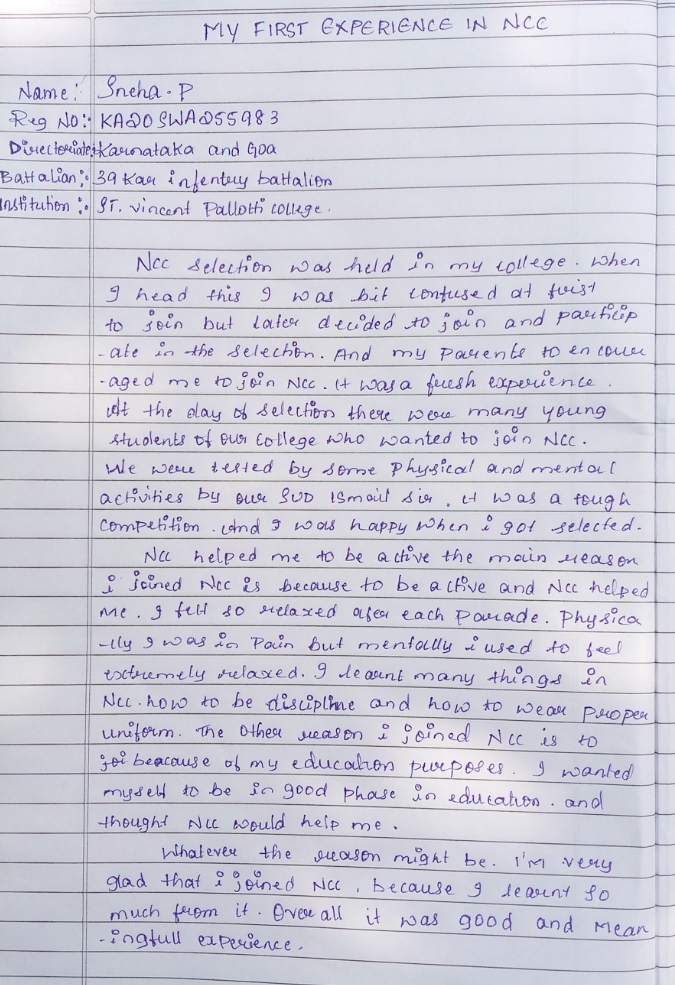 MY FIRST EXPERIENCE IN NCC
Name : Sneha . P
Reg NO : KA20SWA255983
Directoriate : Karnataka and Goa
Battalian : 39 Kar infentry battalion
Institution : ST. Vincent Pallotti college .
Ncc selection was held in my college . when
I head this I was bit confused at first
to join but later decided to join and particip
-ate in the selection. And my Parents to en cour
-aged me to join Ncc. It was a fresh experience .
At the day of selection there were many young
students of our College who wanted to join Ncc.
We were tested by some Physical and mental
activities by our SUO Ismail sir . it was a tough
competition . And I was happy when i got selected.
Ncc helped me to be active the main reason
i joined Ncc is because to be active and Ncc helped
me . I felt so relaxed after each Parade. Physica
-lly I was in Pain but mentally i used to feel
extremely relaxed. I learnt many things in
Ncc. how to be discipline and how to wear proper
uniform. The other reason i joined Ncc is to
joi beacause of my education purposes. I wanted
myself to be in good phase in education . and
thought Ncc would help me .
Whatever the reason might be. I'm very
glad that i joined Ncc , because I learnt so
much from it . Over all it was good and Mean
-ingfull experience .